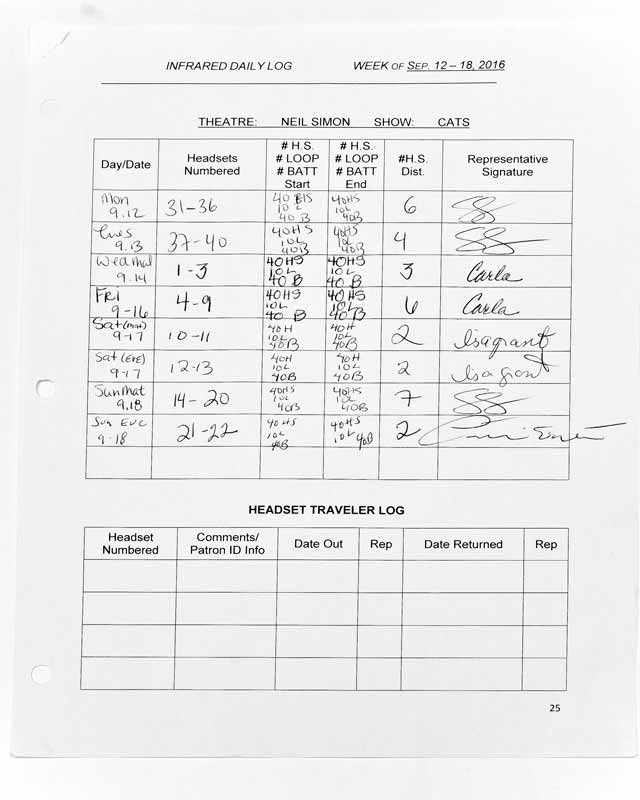 INFRARED DAILY LOG WEEK OF SEP. 12 – 18, 2016
THEATRE: NEIL SIMON SHOW: CATS
Day/Date Headsets Numbered # H.S. # LOOP # BATT Start # H.S. # LOOP # BATT End #H.S. Dist. Representative Signature
Mon 9.12 31-36 40 HS 10 L 40 B 40HS 10L 40B 6
Tues 9.13 37-40 40HS 10L 40B 40HS 10L 40B 4
Wed Mat 9.14 1-3 40HS 10L 40 B 40HS 10L 40 B 3 Carla
FRI 9-16 4-9 40HS 10L 40 B 40HS 10L 40 B 6 Carla
Sat (mat) 9-17 10-11 40H 10L 40B 40H 10L 40B 2 Isagrant
Sat (EVE) 9-17 12-13 40H 10L 40B 40H 10L 40B 2 Isagrant
Sun Mat 9.18 14-20 40HS 10L 40B 40HS 10L 40B 7
Sun Eve 9-18 21-22 40HS 10L 40B 40HS 10L 40B 2
HEADSET TRAVELER LOG
Headset Numbered Comments/ Patron ID Info Date Out Rep Date Returned Rep
25